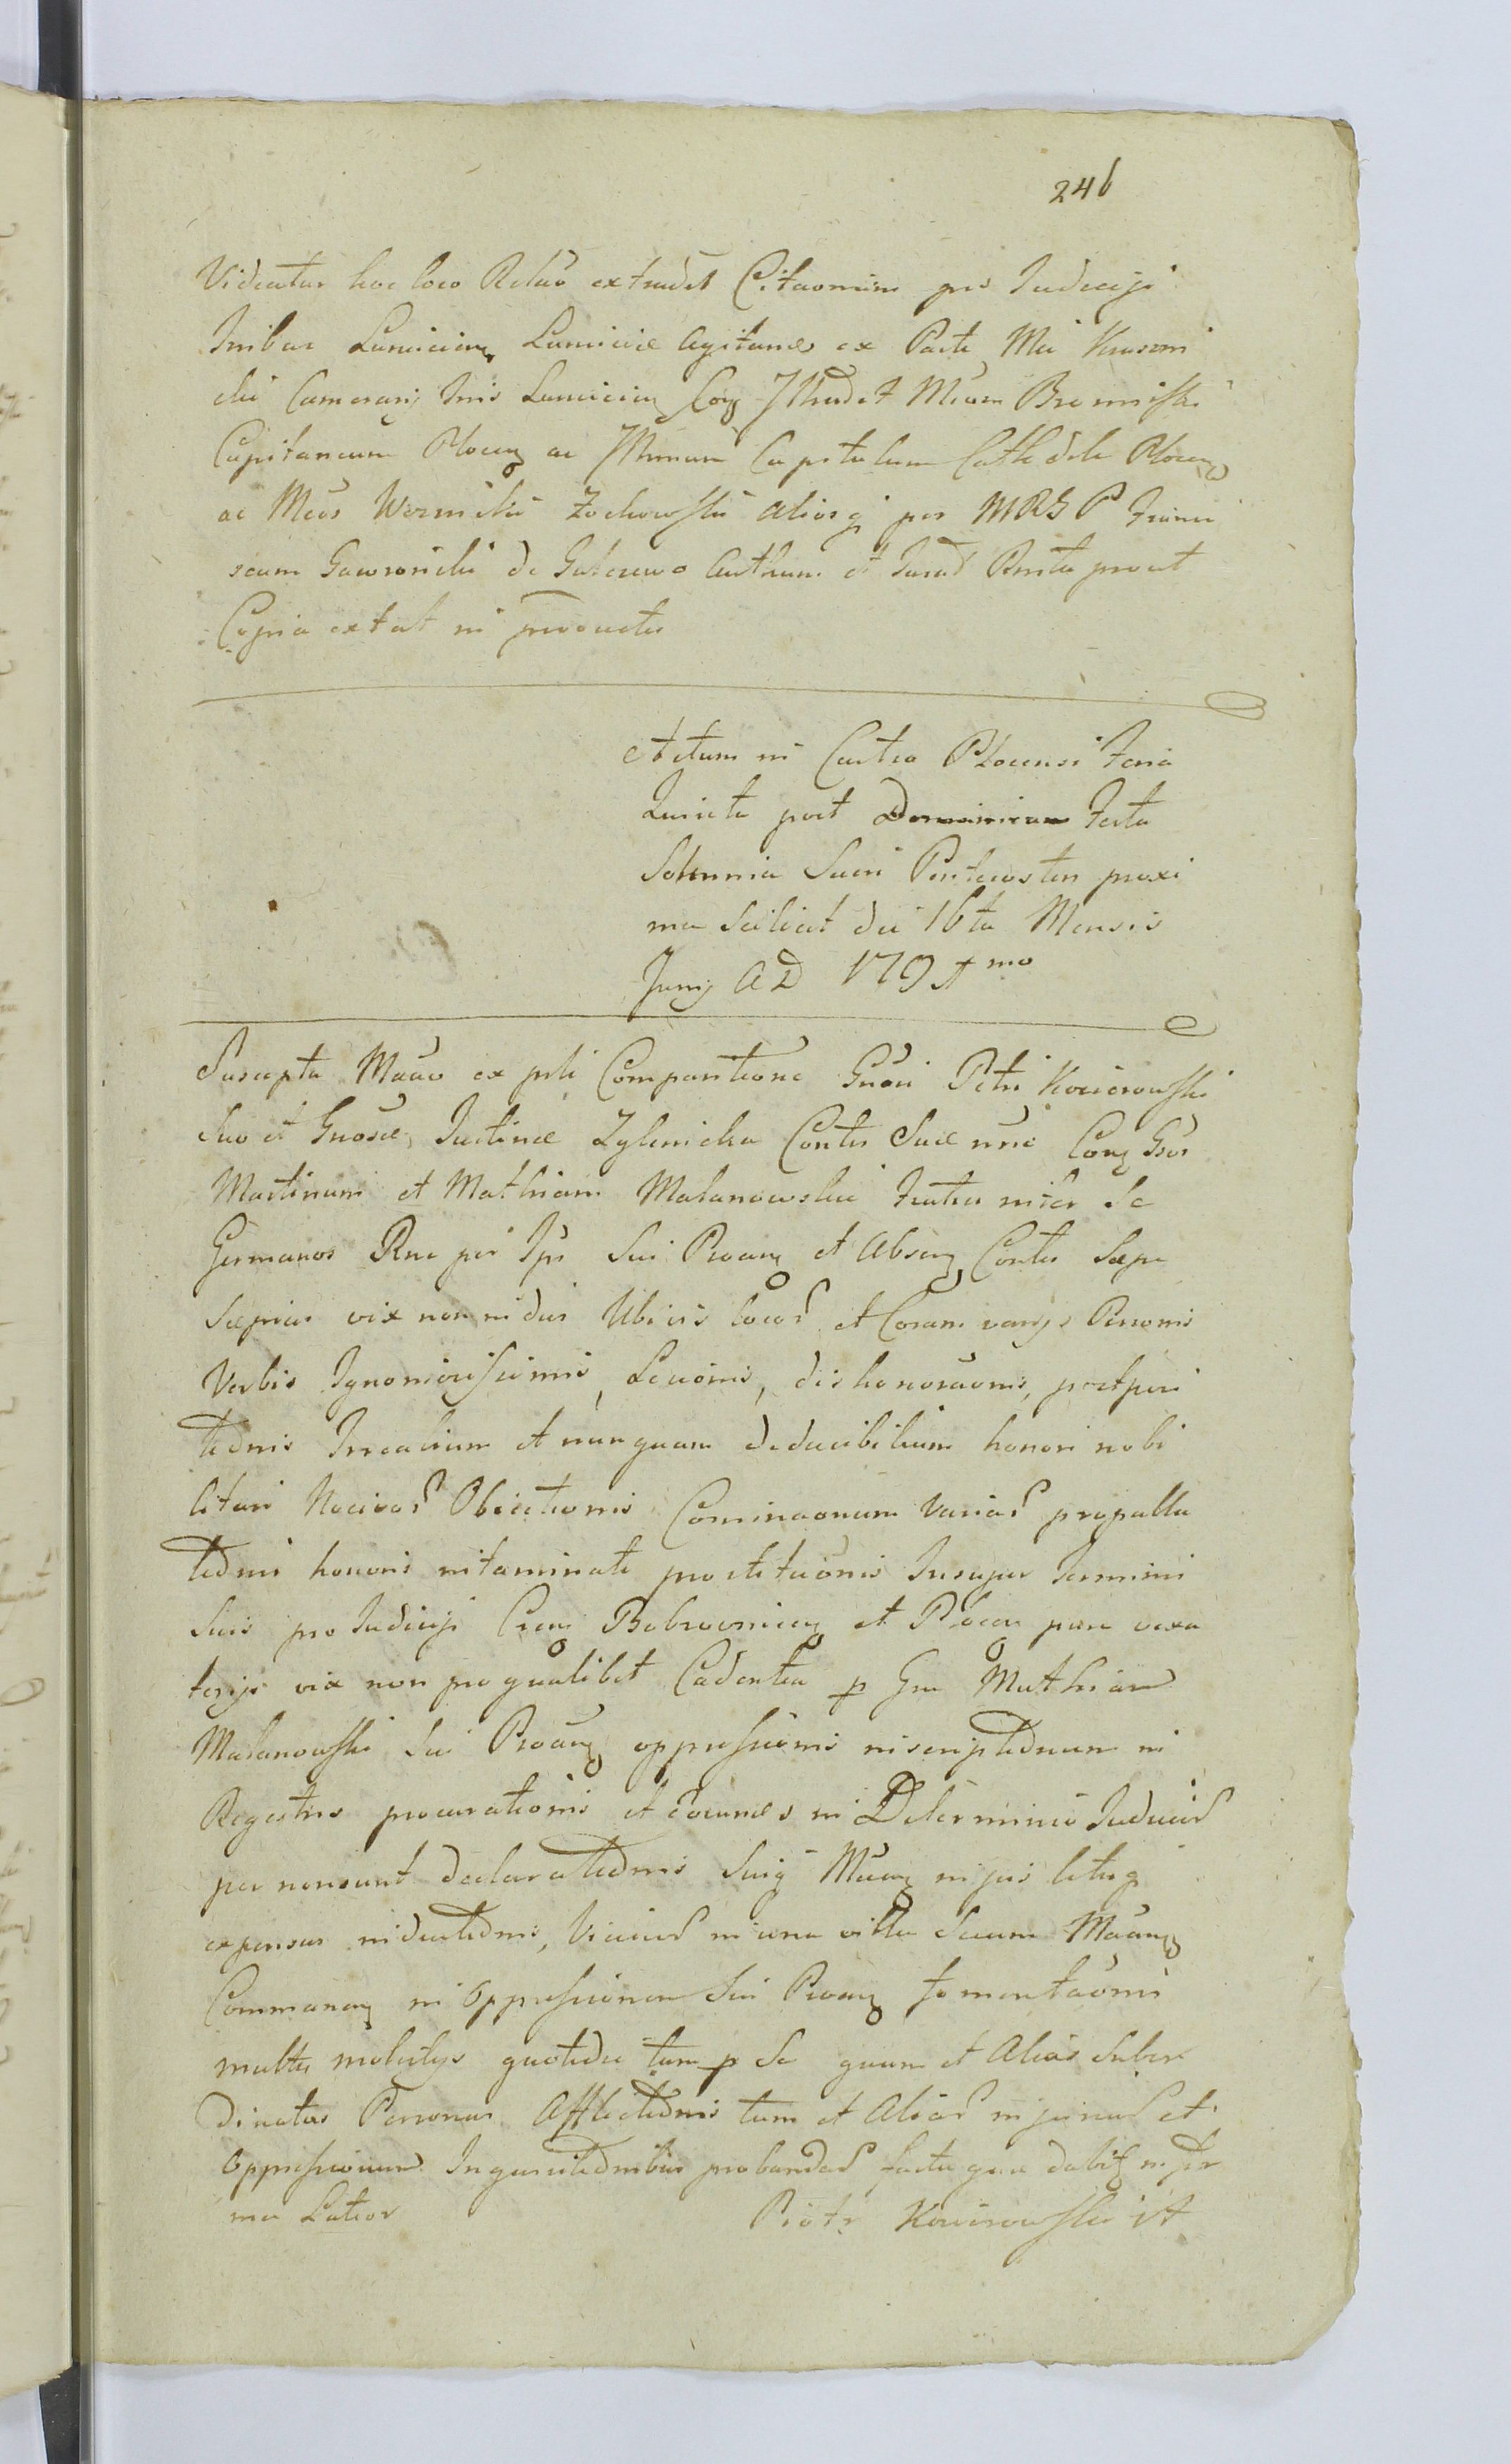 246
Videatur hoc loco Relao extradet Citaonum pro Judicijs
Inibus Lancicien Lanciciae Agitand ex Parte Mci
cki Camerarij Lancicien Con Illud et Mcum
Capitaneum Plocen ac Illmum Capitulum Cathdle Plocen
ac Mcos Woznicki Zochowski Aliosq per MRGP Franci
scum Gawronicki de Authum et Jurat prout
Copia extat in productu
Actum in Castro Plocensi Feria
Quinta post Dominicam Festa
Solennia Sacri Pentecosten proxi
ma Scilicet die 16ta Mensis
Junij AD 1791mo
Suscepta Maao ex psti Comparitione Gnosi Petri Kociorowski
Suo et Gnosae Justinae Zglenicka Contis Suae nne Con Gsos
Martinum et Mathiam Malanowskie Fratres inter Se
Germanos Rne per Ips Sui Proan et Absen Contis Saepe
Saepius vix non in dies Ubivis locor et Coram varijs Personis
Verbis Ignominiosissimis, Lesionis, dishonoraonis,
tednis Irrealium et nunquam deducibilium honori nobi
litari Nocivor Obiectionis Cominaonum Variar propalla
tednis honoris intaminati prostituaonis Insuper Terminis
Suis pro Judicijs Cren Bobrovnicen et Plocen pure vexa
torijs vix non pro qualibet Cadentia p Gm Mathiam
Malanowski Sui Proan oppressionis inscriptednum in
Regestris procurationis et eorumd in Determinis Judiciar
per nonsunt declaratednis Suiq Maan in jus litesq
expensas inductednis, Vicinor in una villa Secum Maan
Comman in Oppressionem Sui Proan fomentaonis
multis molestijs quotidie tum p Se quam et Alias Subor
dinatas Personas Afflictednis tum et Aliar injuriar et
Oppressionum Inquisitednibus probandar facta que dabit in for
ma Latior Piotr Kociorowski